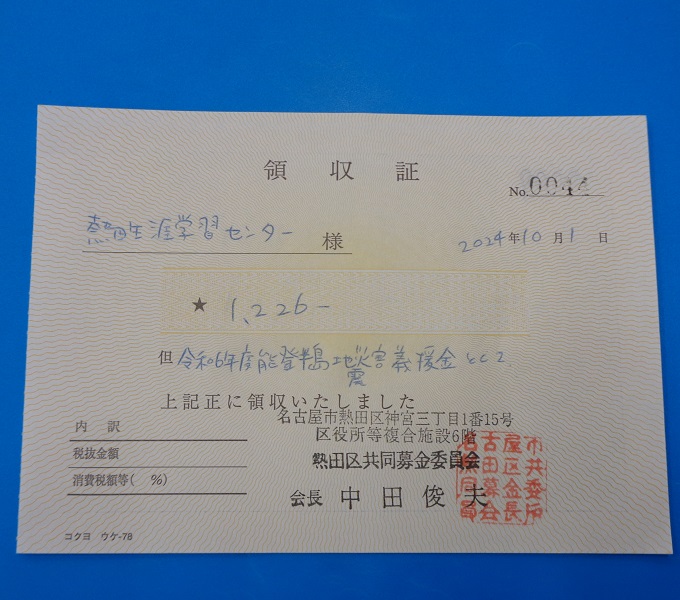 領収証
No. 0044
熱田生涯学習センター 様
2024年10月1日
★ 1,226-
但 令和6年度能登半島地震災害義援金として
上記正に領収いたしました
名古屋市熱田区神宮三丁目1番15号
区役所等複合施設6階
熱田区共同募金委員会
会長 中田俊夫
内訳
税抜金額
消費税額等( %)
コクヨ ウケ-78